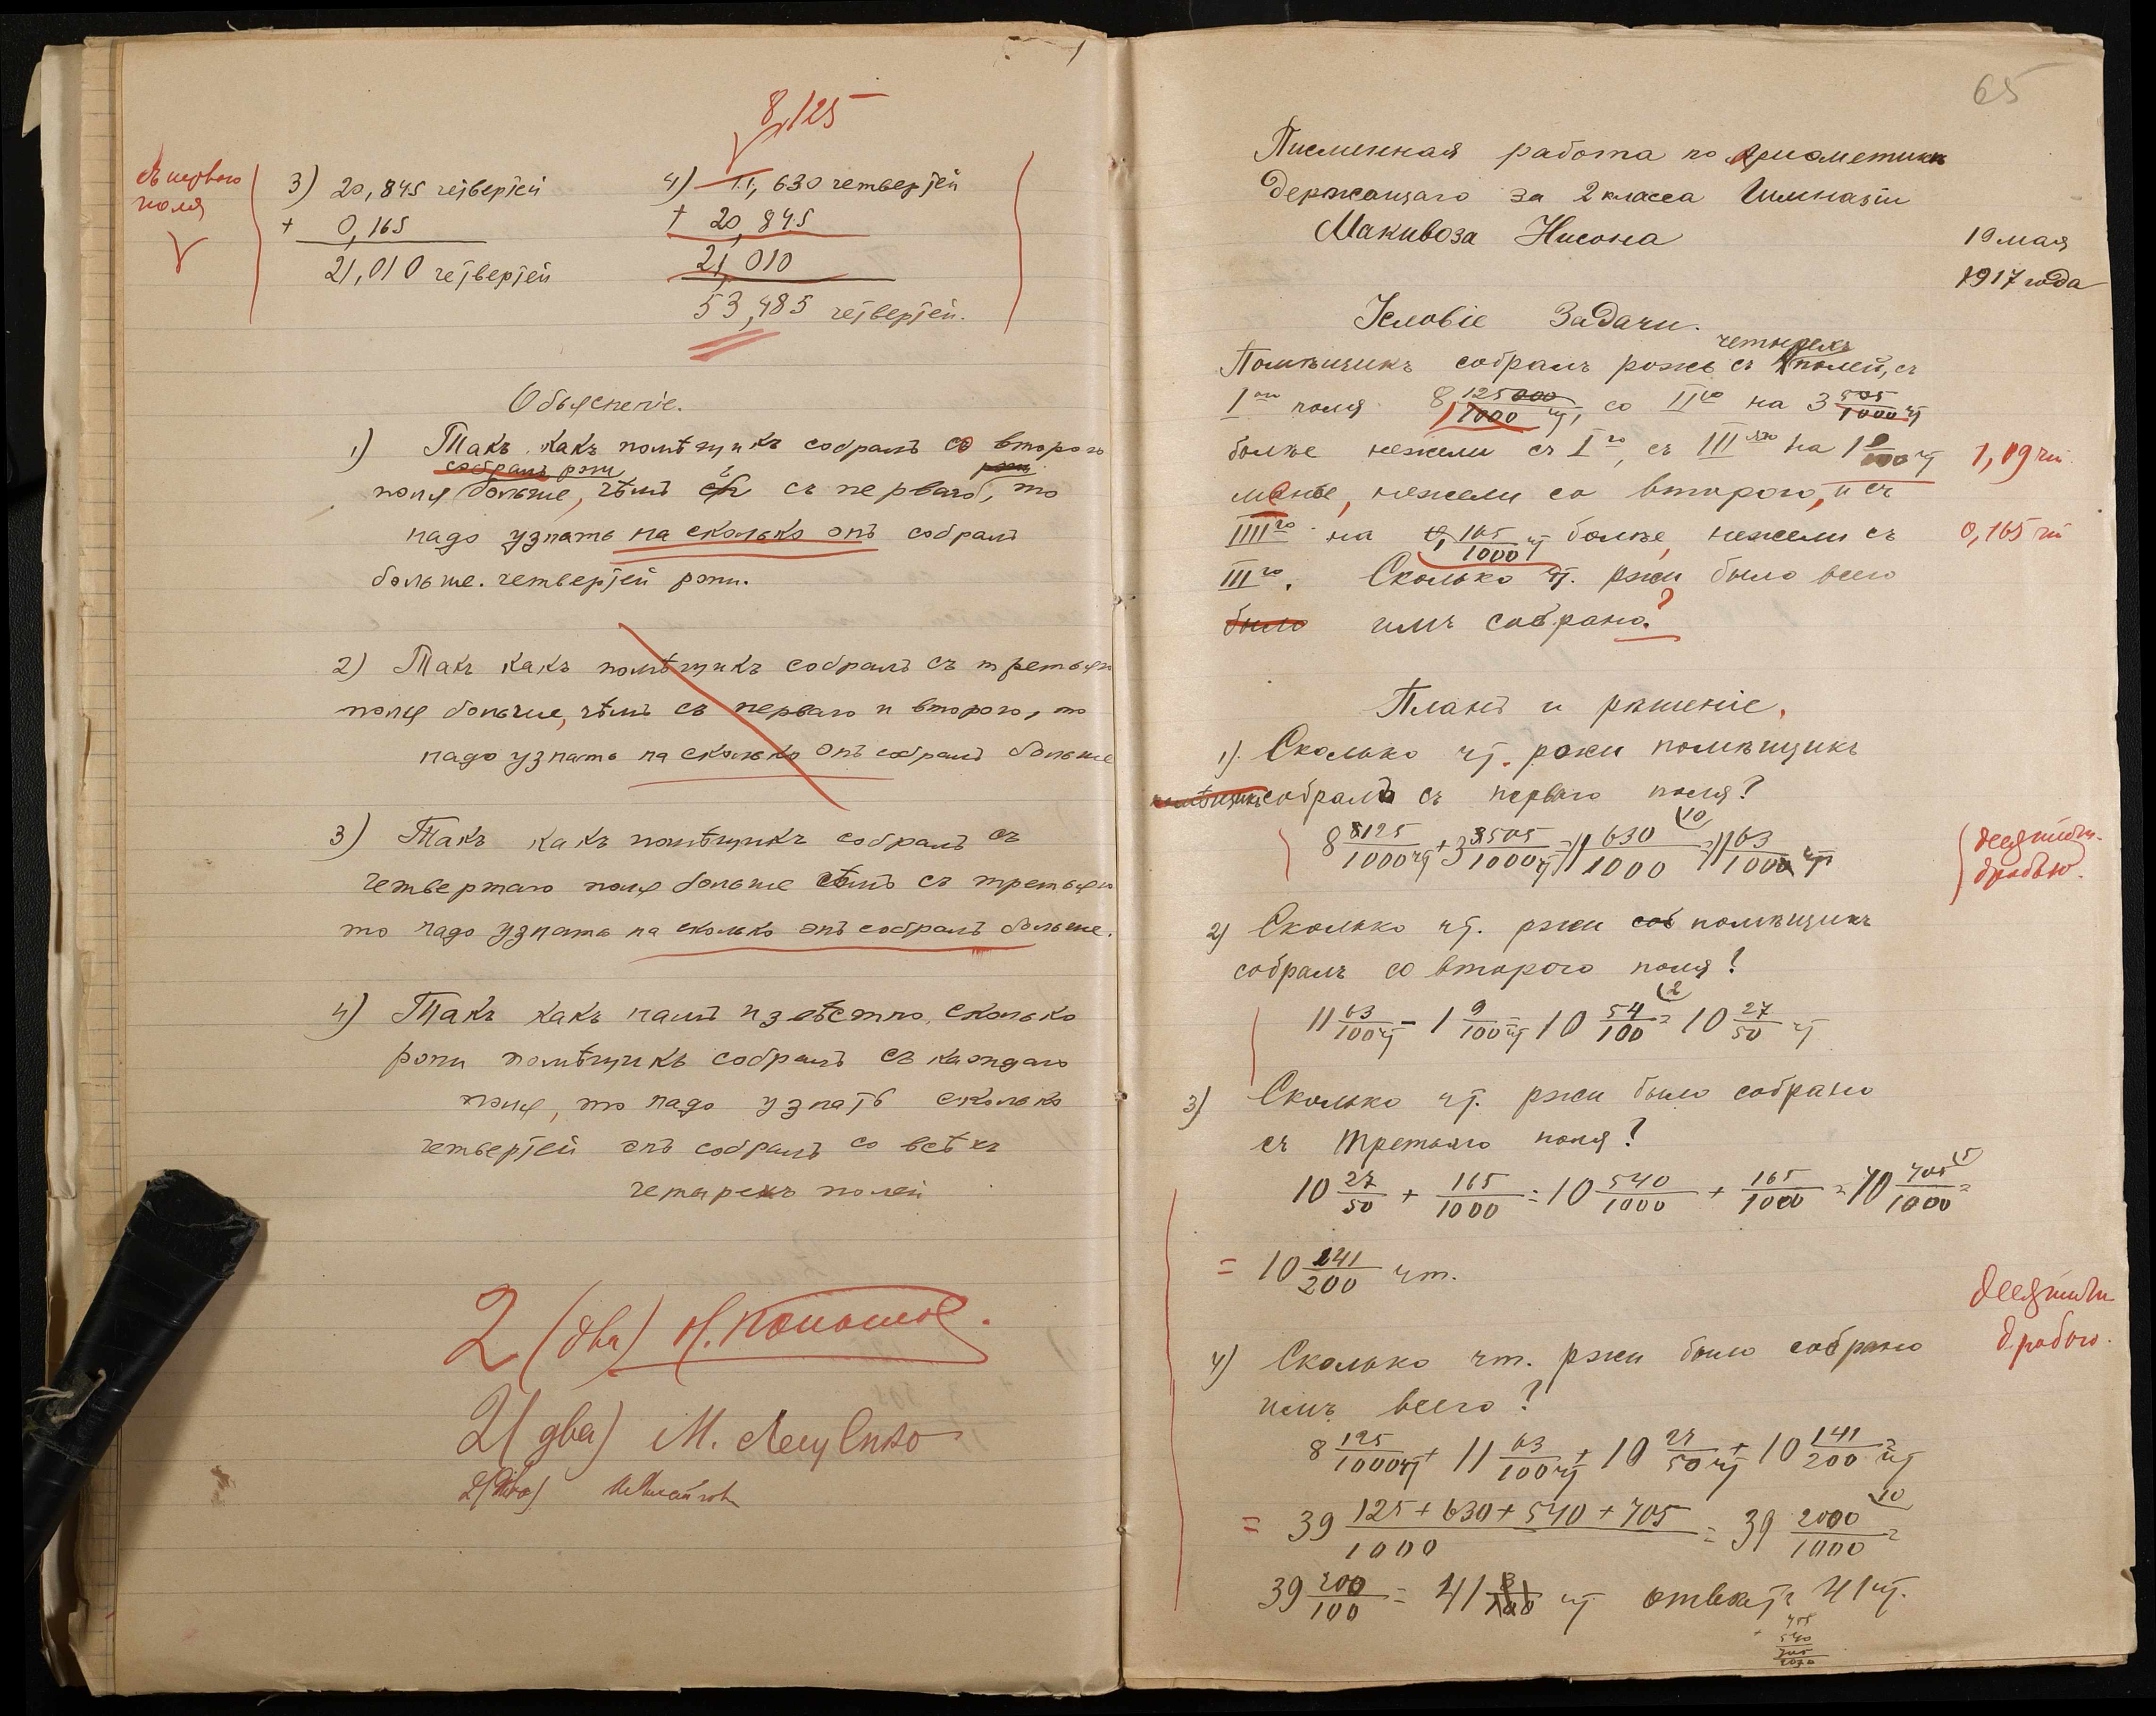 8,125
съ перваго
поля
3) 20,845 четвертей
+ 0,165
21,010 четвертей
4) 11,630 четвертей
+ 20,845
21,010
53,485 четвертей.
Объясненіе.
1) Такъ какъ помѣщикъ собралъ со второго
собралъ ржи ржи
поля больше, чѣмъ съ перваго, то
надо узнать на сколько онъ собралъ
больше. четвертей ржи.
2) Такъ какъ помѣщикъ собралъ съ третьяго
поля больше, чѣмъ съ перваго и второго, то
надо узнать на сколько онъ собралъ больше
3) Такъ какъ помѣщикъ собралъ съ
четвертаго поля больше чѣмъ съ третьяго
то надо узнать на сколько онъ собралъ больше.
4) Такъ какъ намъ извѣстно, сколько
ржи помѣщикъ собралъ съ каждаго
поля, то надо узнать сколько
четвертей онъ собралъ со всѣхъ
четырехъ полей
2 (два)
2 (два) М.
2 (два)
65
Писменная работа по Ариѳметикѣ
Держащаго за 2 класса Гимназіи
Макивоза Нисона
19 мая
1917 года
Условіе Задачи.
четырехъ
Помѣщикъ собралъ рожь съ 4 полей, съ
1го поля 8 125000/1000 чт, со IIго на 3 505/1000 чт
болѣе нежели съ Iго, съ IIIяго на 1 9/100 чт 1,09 чт.
менѣе, нежели со второго, и съ
IIIIго на 0, 165/1000 чт болѣе, нежели съ 0,165 чт
IIIго. Сколько чт. ржи было всего
было имъ собрано?
Планъ и рѣшеніе.
1). Сколько чт. ржи помѣщикъ
помѣщикъ собралъ съ перваго поля?
8 8125/1000 чт + 3 3505/1000 чт = 11 630/1000 (10 = 11 63/100 чт
десятичн.
дробью.
2) Сколько чт. ржи соб помѣщикъ
собралъ со второго поля?
11 63/100 чт - 1 9/100 чт = 10 54/100 (2 = 10 27/50 чт
3) Сколько чт. ржи было собрано
съ третьяго поля?
10 27/50 + 165/1000 = 10 540/1000 + 165/1000 = 10 705/1000 (5 =
= 10 141/200 чт.
десятичн
дробью.
4) Сколько чт. ржи было собрано
имъ всего?
8 125/1000 чт + 11 63/100 чт + 10 27/50 чт + 10 141/200 чт =
= 39 125 + 630 + 540 + 705/1000 = 39 2000/1000 (10 =
39 200/100 = 41 чт отвѣтъ 41 чт.
540
705
2000